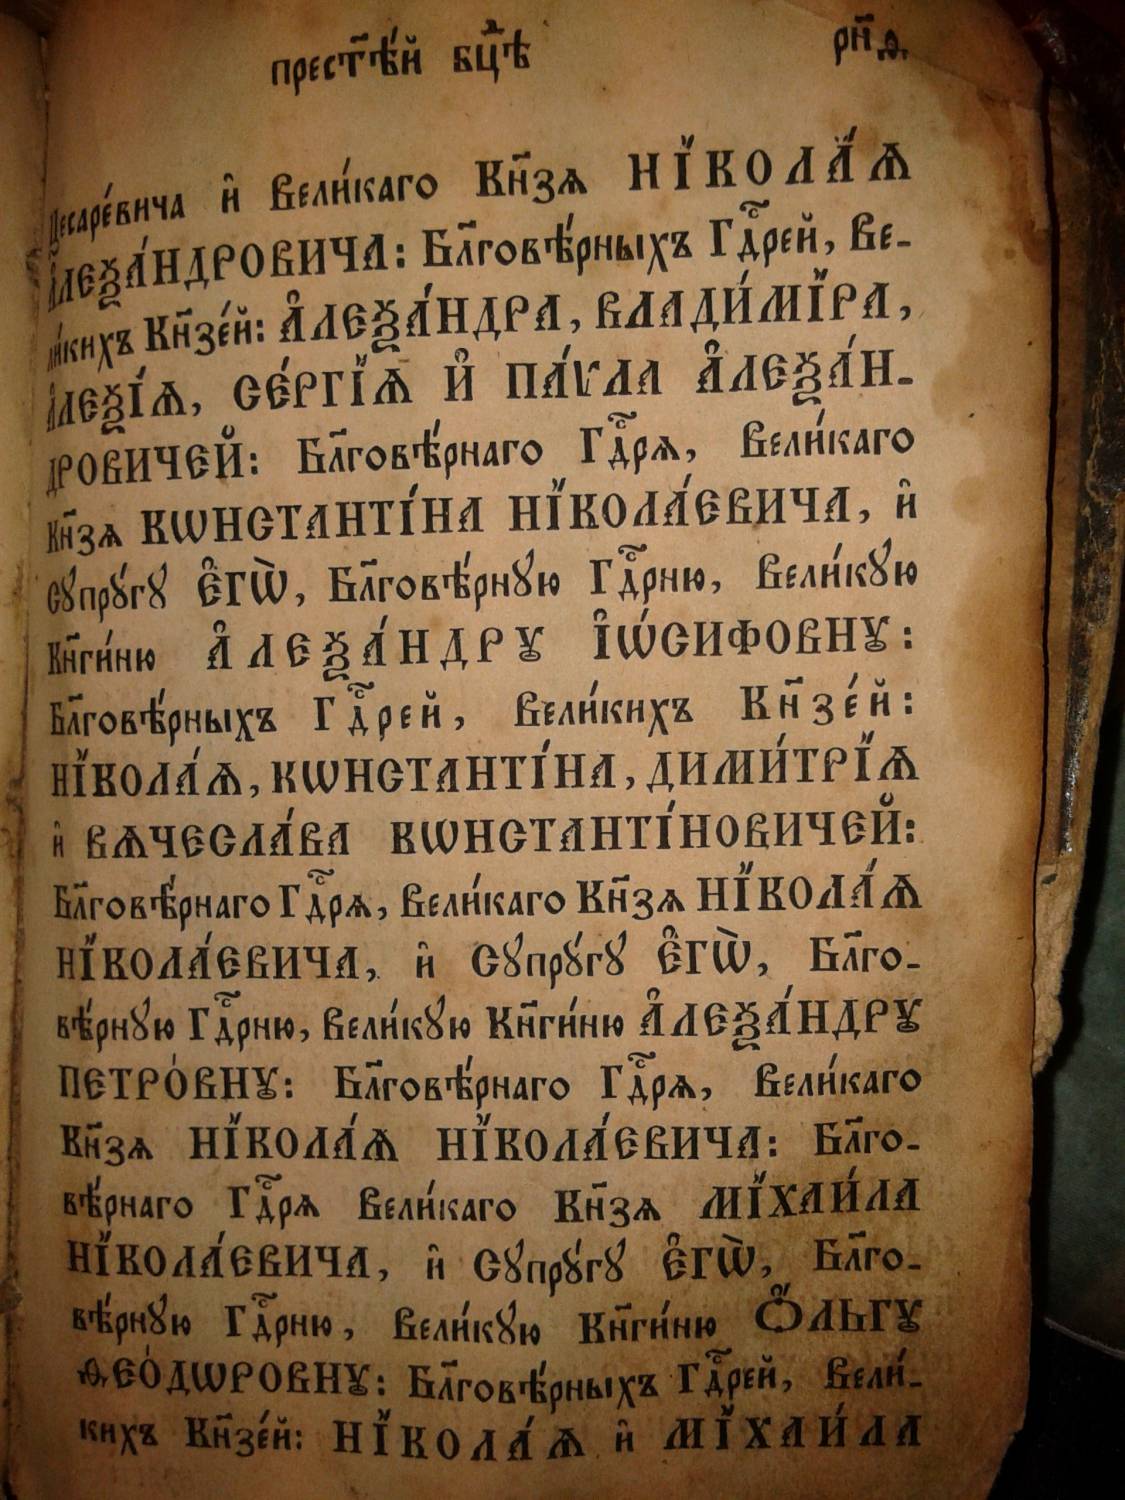 прест҃ѣ́й бц҃ѣ
рн҃ѳ.
Цесаре́вича и҆ Вели́каго Кн҃зѧ НЇКОЛА́Ѧ
А҆ЛЕѮА́НДРОВИЧА: Бл҃говѣ́рныхъ Гдⷭ҇рей, Ве-
ли́кихъ Кн҃зе́й: А҆ЛЕѮА́НДРА, ВЛАДИ́МЇРА,
А҆ЛЕѮІ́Ѧ, СЕ́РГЇѦ И҆ ПА́ѴЛА А҆ЛЕѮА́Н-
ДРОВИЧЕЙ: Бл҃говѣ́рнаго Гдⷭ҇рѧ, Вели́каго
Кн҃зѧ КѠНСТАНТІ́НА НЇКОЛА́ЕВИЧА, и҆
Сꙋпрꙋ́гꙋ Є҆ГѠ̀, Бл҃говѣ́рнꙋю Гдⷭ҇рню, Вели́кꙋю
Кн҃ги́ню А҆ЛЕѮА́НДРꙊ І҆Ѡ́СИФОВНꙊ:
Бл҃говѣ́рныхъ Гдⷭ҇рей, Вели́кихъ Кн҃зе́й:
НЇКОЛА́Ѧ, КѠНСТАНТІ́НА, ДИМИ́ТРЇѦ
и҆ ВѦЧЕСЛА́ВА КѠНСТАНТІ́НОВИЧЕЙ:
Бл҃говѣ́рнаго Гдⷭ҇рѧ, Вели́каго Кн҃зѧ НЇКОЛА́Ѧ
НЇКОЛА́ЕВИЧА, и҆ Сꙋпрꙋ́гꙋ Є҆ГѠ̀, Бл҃го-
вѣ́рнꙋю Гдⷭ҇рню, Вели́кꙋю Кн҃ги́ню А҆ЛЕѮА́НДРꙊ
ПЕТРО́ВНꙊ: Бл҃говѣ́рнаго Гдⷭ҇рѧ, Вели́каго
Кн҃зѧ НЇКОЛА́Ѧ НЇКОЛА́ЕВИЧА: Бл҃го-
вѣ́рнаго Гдⷭ҇рѧ Вели́каго Кн҃зѧ МЇХАИ́ЛА
НЇКОЛА́ЕВИЧА, и҆ Сꙋпрꙋ́гꙋ Є҆ГѠ̀, Бл҃го-
вѣ́рнꙋю Гдⷭ҇рню, Вели́кꙋю Кн҃ги́ню Ѻ҆́ЛЬГꙊ
ѲЕО́ДѠРОВНꙊ: Бл҃говѣ́рныхъ Гдⷭ҇рей, Вели́-
кихъ Кн҃зе́й: НЇКОЛА́Ѧ и҆ МЇХАИ́ЛА